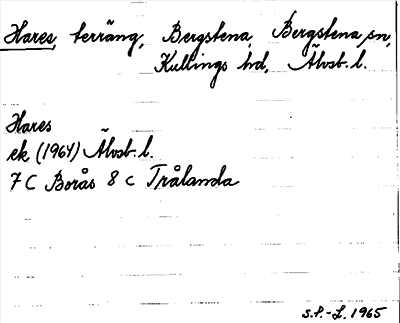 Hares, terräng, Bergstena, Bergstena sn,
Kullings hd, Älvsb. l.
Hares
ek (1964) Älvsb. l.
7 C Borås 8 c Trålanda
S.P.-L. 1965